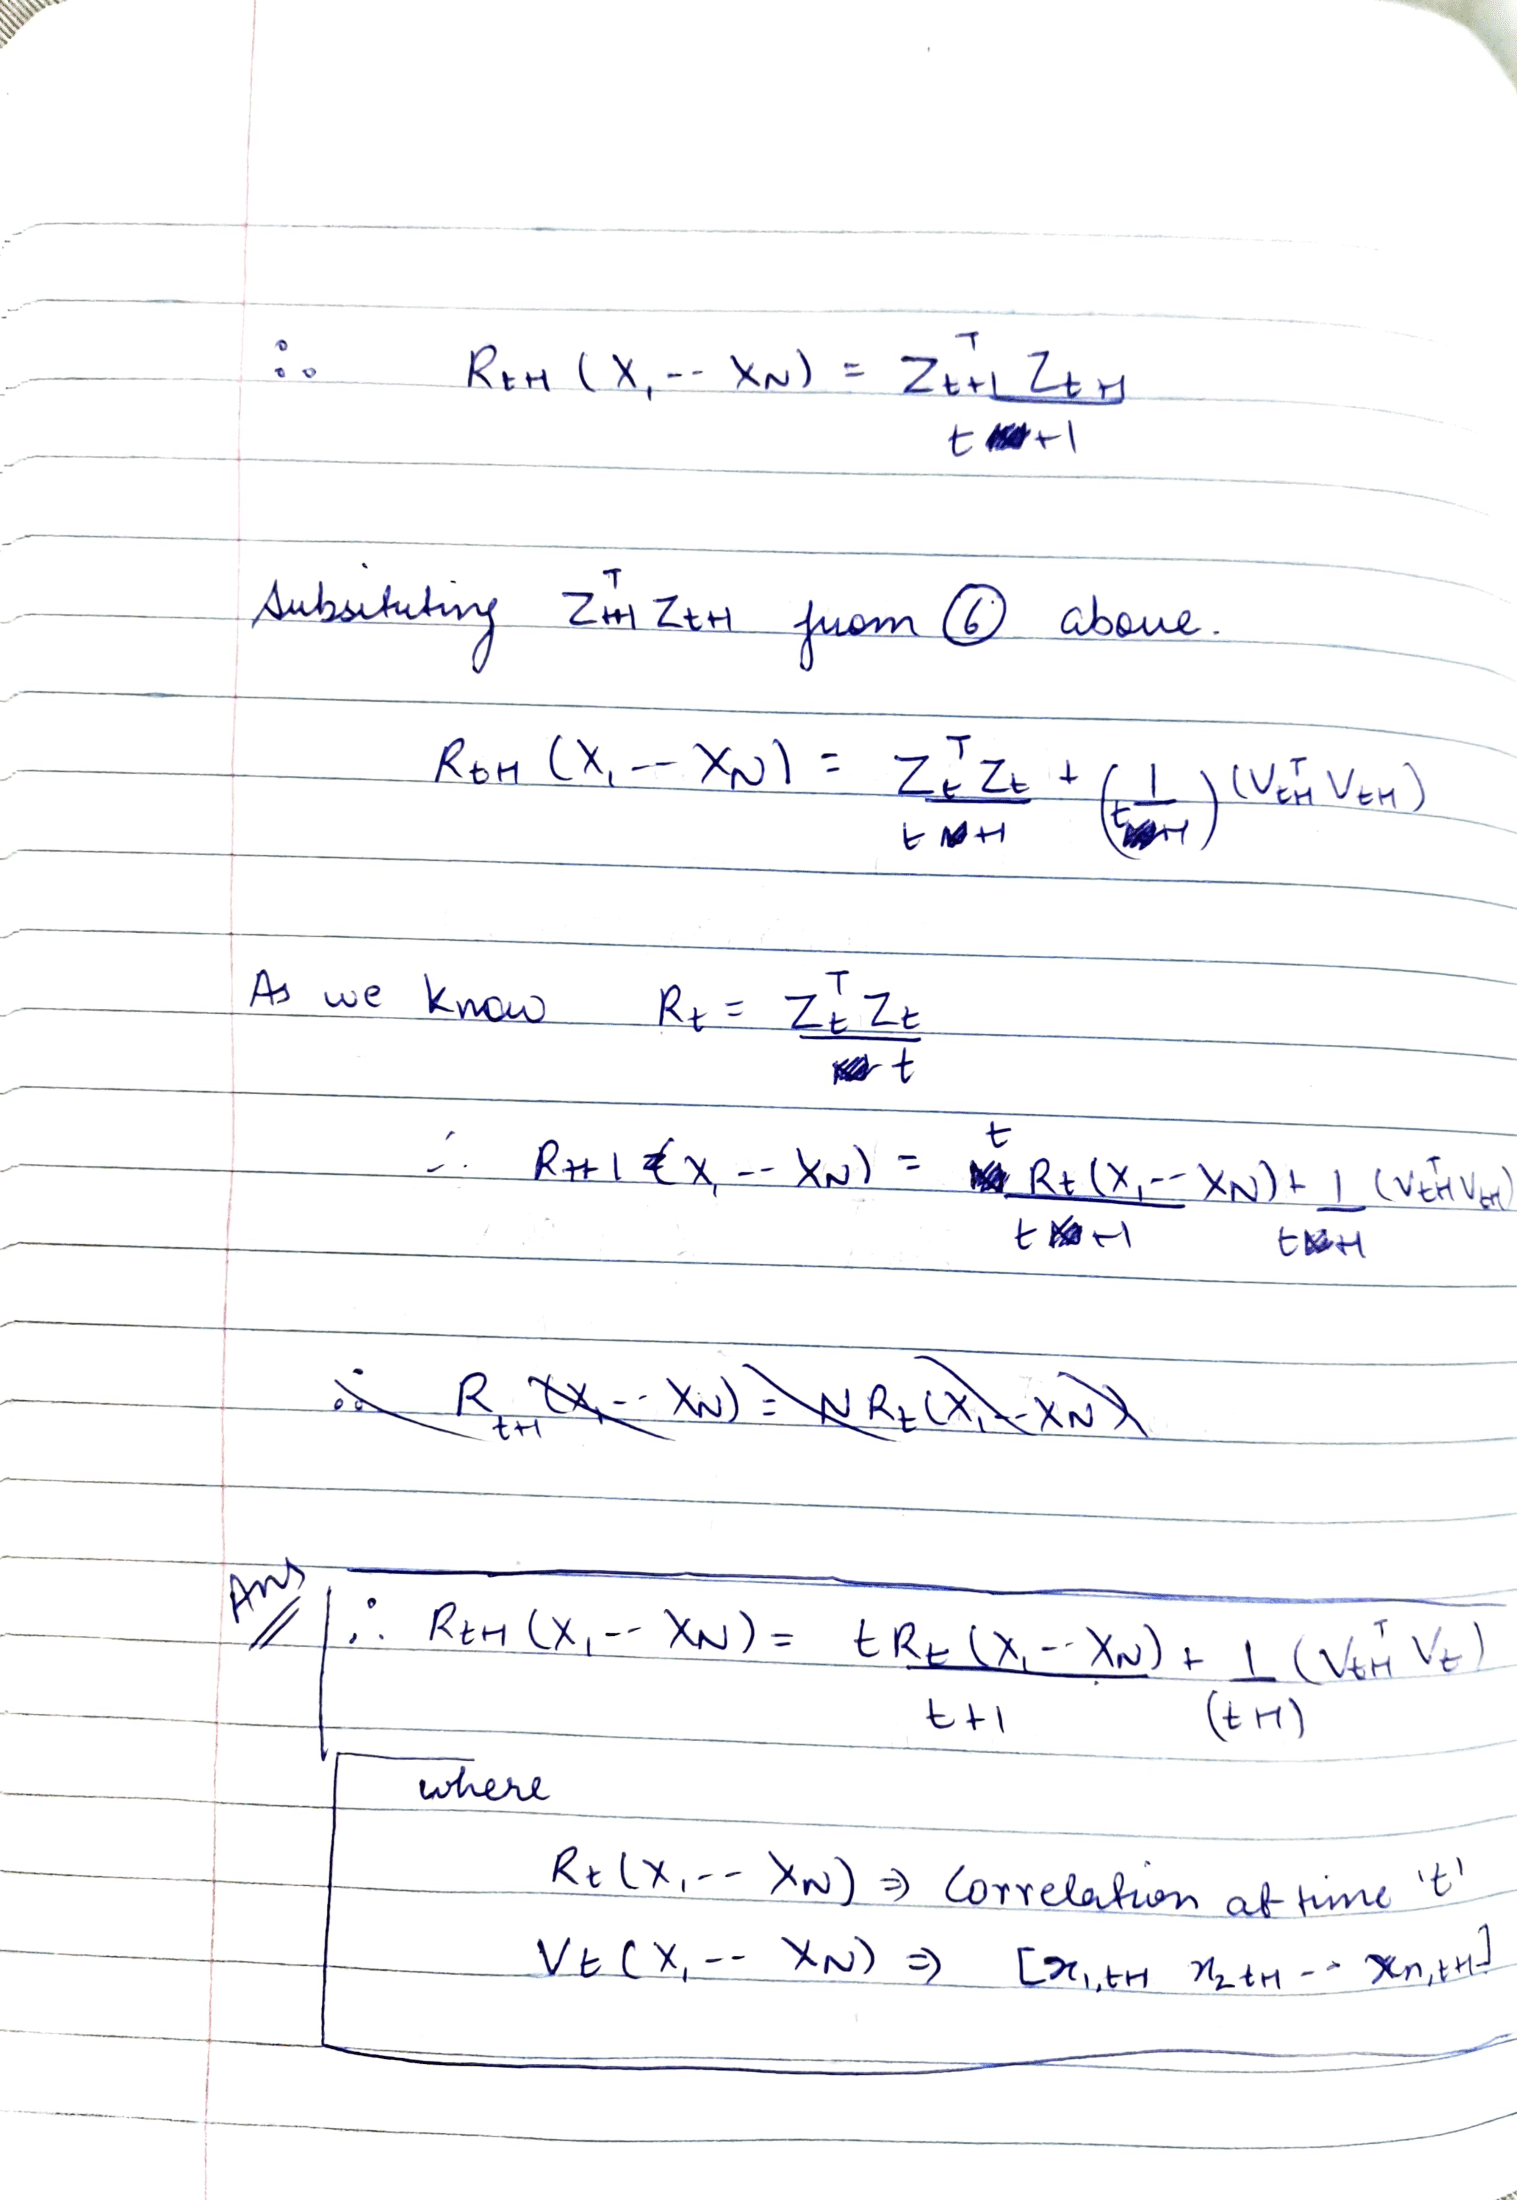 ∴ R_{t+1} (X_1 -- X_N) = Z_{t+1}^T Z_{t+1} / t+1
Subsituting Z_{t+1}^T Z_{t+1} from ⑥ above.
R_{t+1} (X_1 -- X_N) = Z_t^T Z_t / t+1 + (1 / t+1) (V_{t+1}^T V_{t+1})
As we know R_t = Z_t^T Z_t / t
∴ R_{t+1} (X_1 -- X_N) = t R_t (X_1 -- X_N) / t+1 + 1 / t+1 (V_{t+1}^T V_{t+1})
∴ R_{t+1} (X_1 -- X_N) = N R_t (X_1 -- X_N)
Ans ∴ R_{t+1} (X_1 -- X_N) = t R_t (X_1 -- X_N) / t+1 + 1 / (t+1) (V_{t+1}^T V_t)
where
R_t (X_1 -- X_N) ⇒ Correlation at time 't'
V_t (X_1 -- X_N) ⇒ [x_{1,t+1} x_{2 t+1} -- x_{n,t+1}]